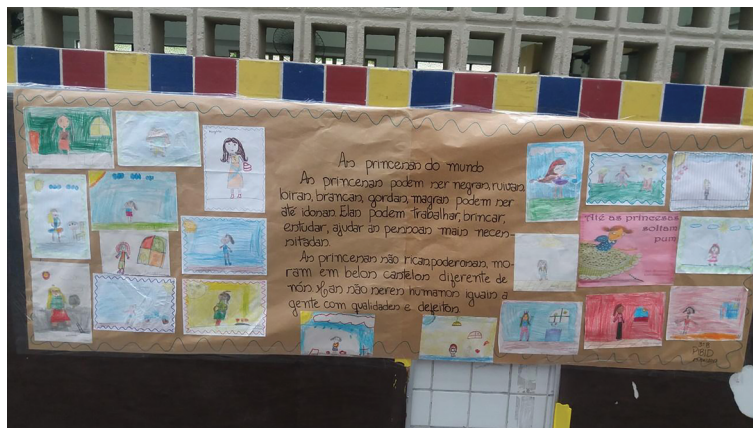 As princesas do mundo
As princesas podem ser negras, ruivas,
loiras, brancas, gordas, magras podem ser
até idosas. Elas podem trabalhar, brincar,
estudar, ajudar as pessoas mais neces-
sitadas.
As princesas são ricas, poderosas, mo-
ram em belos castelos diferente de
nós. Mas são seres humanos iguais a
gente com qualidades e defeitos.
Até as princesas
soltam
pum
PIBID